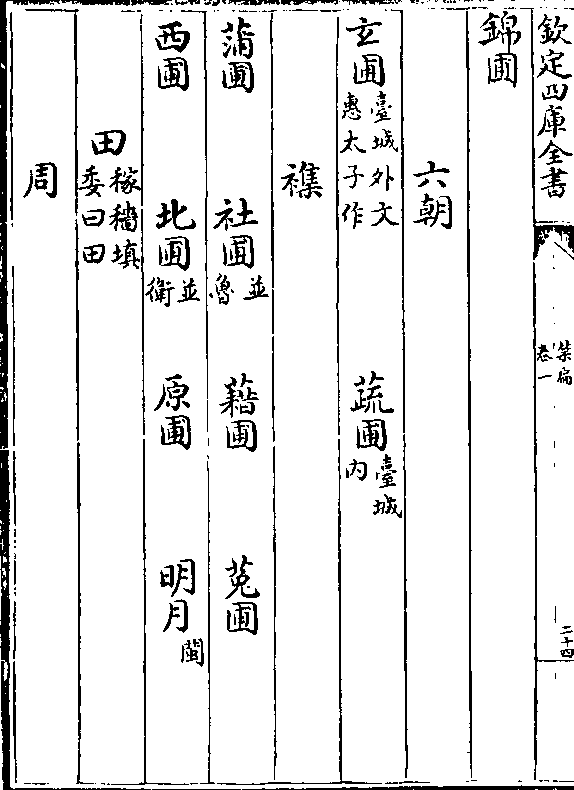 欽定四庫全書
禁扁
卷一
二十四
錦圃
六朝
玄圃臺城外文惠太子作 蔬圃臺城內
襍
蒲圃 社圃並魯 藉圃 菟圃
西圃 北圃並衛 原圃 明月閩
田稼穡填委曰田
周